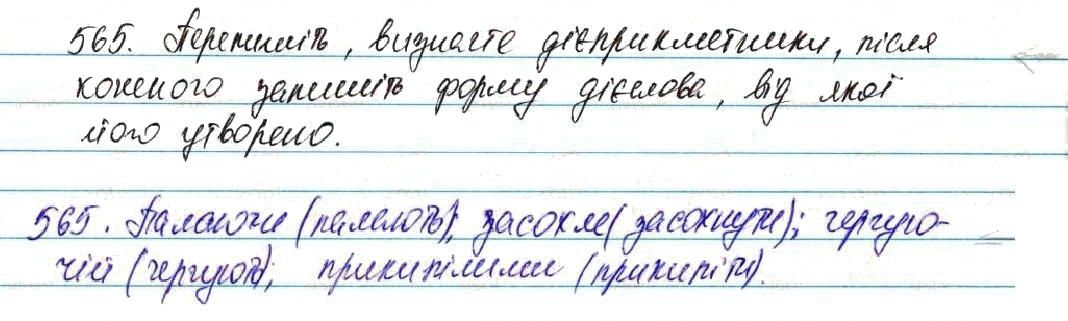 565. Перепишіть, визначте дієприкметники, після
кожного запишіть форму дієслова, від якої
його утворено.
565. Палаючи (палають); засохле (засохнути); чергую-
чій (чергують); прикипілими (прикипіти).